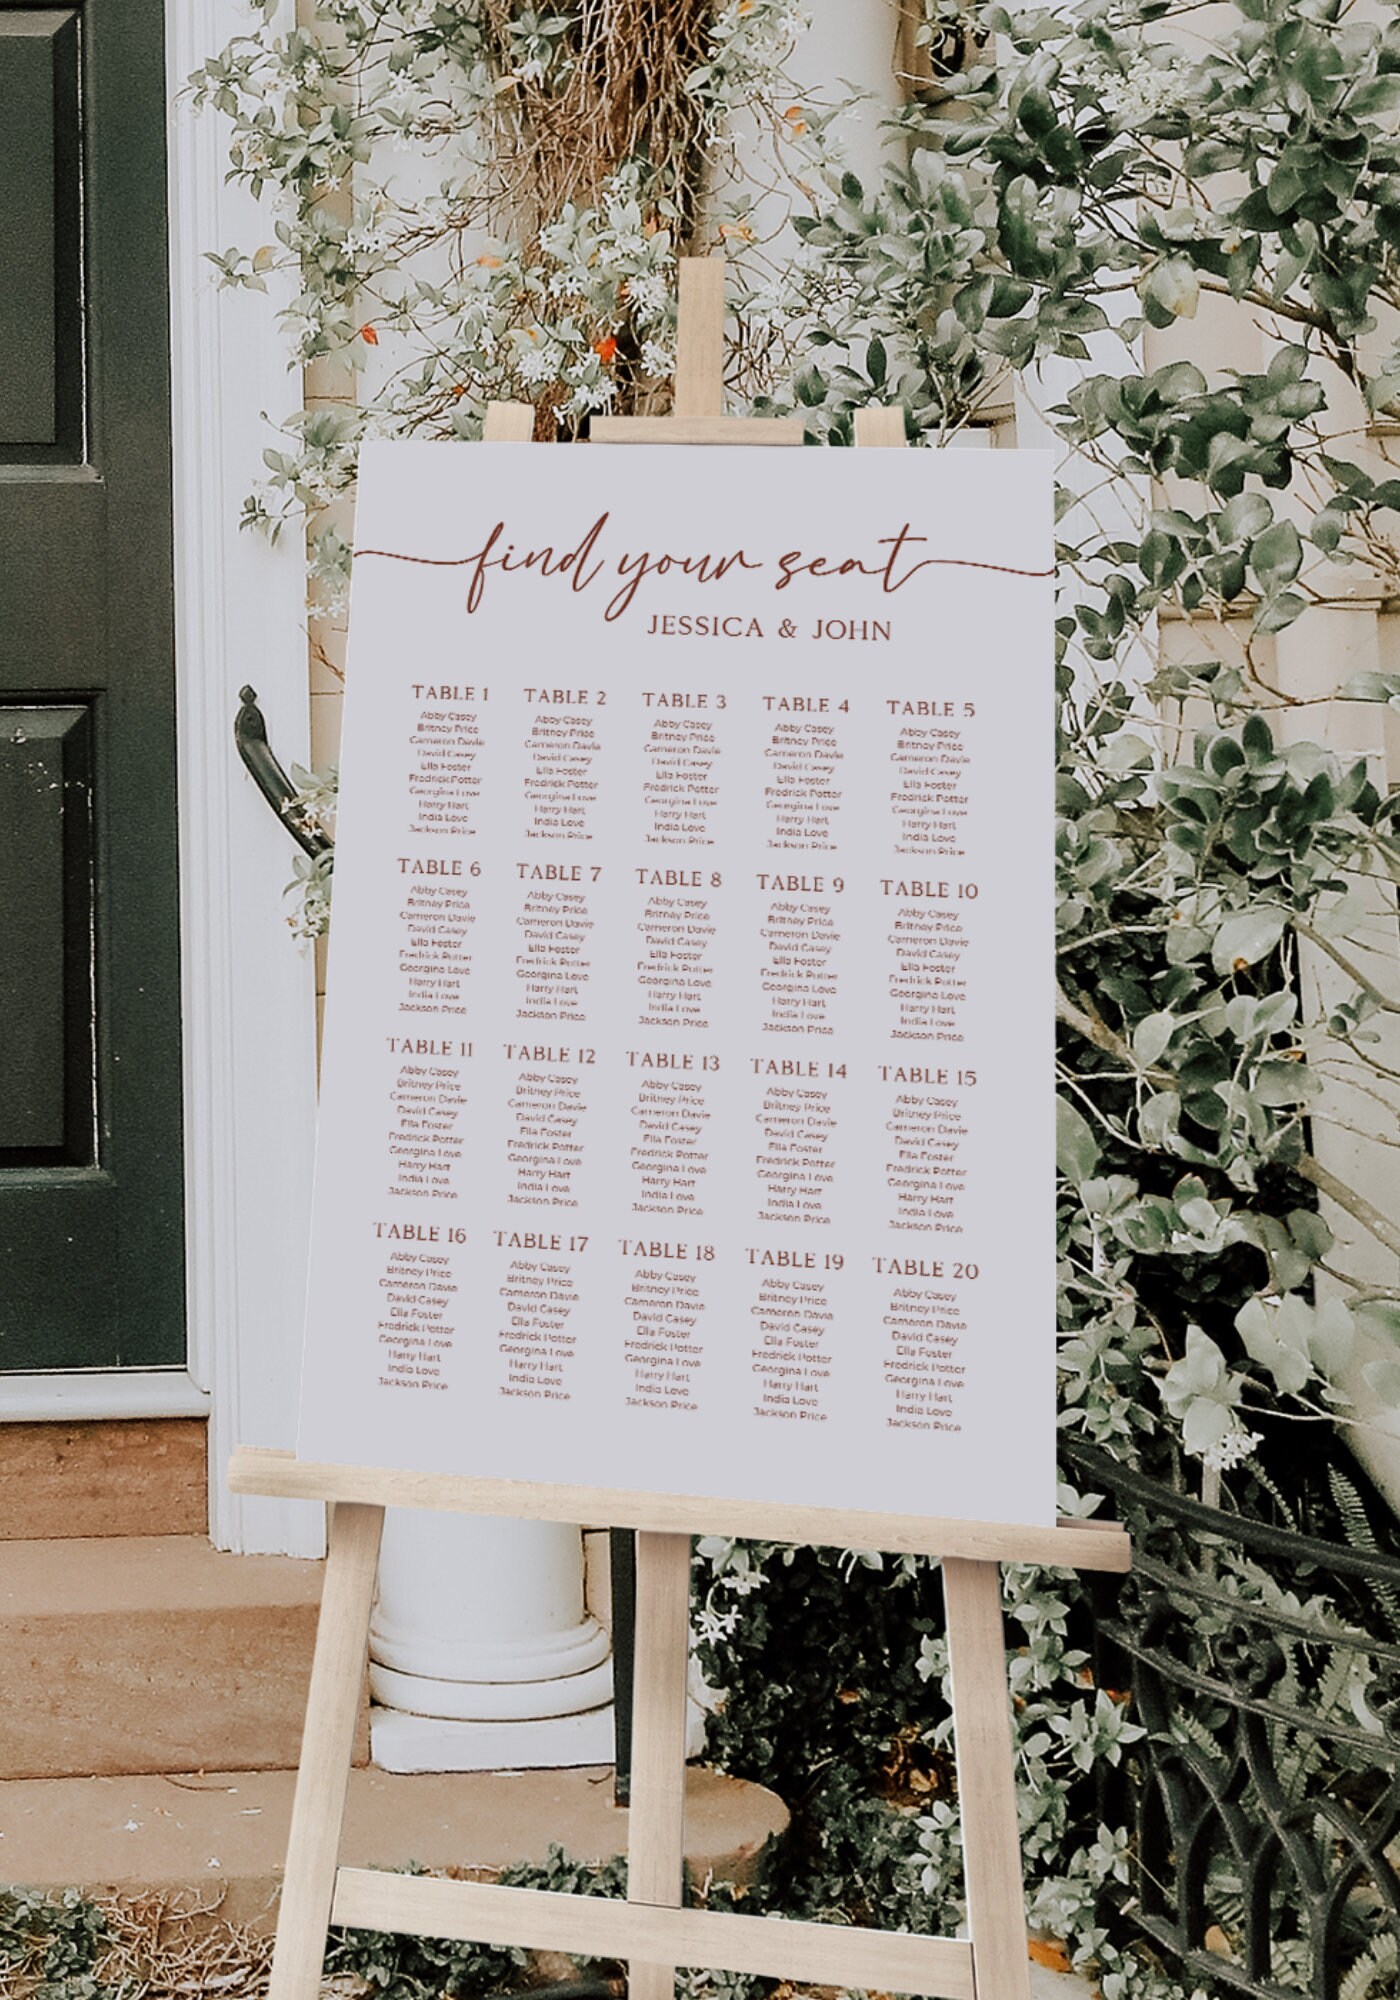 find your seat
JESSICA & JOHN
TABLE 1
Abby Casey
Britney Price
Cameron Davie
David Casey
Ella Foster
Fredrick Potter
Georgina Love
Harry Hart
India Love
Jackson Price
TABLE 2
Abby Casey
Britney Price
Cameron Davie
David Casey
Ella Foster
Fredrick Potter
Georgina Love
Harry Hart
India Love
Jackson Price
TABLE 3
Abby Casey
Britney Price
Cameron Davie
David Casey
Ella Foster
Fredrick Potter
Georgina Love
Harry Hart
India Love
Jackson Price
TABLE 4
Abby Casey
Britney Price
Cameron Davie
David Casey
Ella Foster
Fredrick Potter
Georgina Love
Harry Hart
India Love
Jackson Price
TABLE 5
Abby Casey
Britney Price
Cameron Davie
David Casey
Ella Foster
Fredrick Potter
Georgina Love
Harry Hart
India Love
Jackson Price
TABLE 6
Abby Casey
Britney Price
Cameron Davie
David Casey
Ella Foster
Fredrick Potter
Georgina Love
Harry Hart
India Love
Jackson Price
TABLE 7
Abby Casey
Britney Price
Cameron Davie
David Casey
Ella Foster
Fredrick Potter
Georgina Love
Harry Hart
India Love
Jackson Price
TABLE 8
Abby Casey
Britney Price
Cameron Davie
David Casey
Ella Foster
Fredrick Potter
Georgina Love
Harry Hart
India Love
Jackson Price
TABLE 9
Abby Casey
Britney Price
Cameron Davie
David Casey
Ella Foster
Fredrick Potter
Georgina Love
Harry Hart
India Love
Jackson Price
TABLE 10
Abby Casey
Britney Price
Cameron Davie
David Casey
Ella Foster
Fredrick Potter
Georgina Love
Harry Hart
India Love
Jackson Price
TABLE 11
Abby Casey
Britney Price
Cameron Davie
David Casey
Ella Foster
Fredrick Potter
Georgina Love
Harry Hart
India Love
Jackson Price
TABLE 12
Abby Casey
Britney Price
Cameron Davie
David Casey
Ella Foster
Fredrick Potter
Georgina Love
Harry Hart
India Love
Jackson Price
TABLE 13
Abby Casey
Britney Price
Cameron Davie
David Casey
Ella Foster
Fredrick Potter
Georgina Love
Harry Hart
India Love
Jackson Price
TABLE 14
Abby Casey
Britney Price
Cameron Davie
David Casey
Ella Foster
Fredrick Potter
Georgina Love
Harry Hart
India Love
Jackson Price
TABLE 15
Abby Casey
Britney Price
Cameron Davie
David Casey
Ella Foster
Fredrick Potter
Georgina Love
Harry Hart
India Love
Jackson Price
TABLE 16
Abby Casey
Britney Price
Cameron Davie
David Casey
Ella Foster
Fredrick Potter
Georgina Love
Harry Hart
India Love
Jackson Price
TABLE 17
Abby Casey
Britney Price
Cameron Davie
David Casey
Ella Foster
Fredrick Potter
Georgina Love
Harry Hart
India Love
Jackson Price
TABLE 18
Abby Casey
Britney Price
Cameron Davie
David Casey
Ella Foster
Fredrick Potter
Georgina Love
Harry Hart
India Love
Jackson Price
TABLE 19
Abby Casey
Britney Price
Cameron Davie
David Casey
Ella Foster
Fredrick Potter
Georgina Love
Harry Hart
India Love
Jackson Price
TABLE 20
Abby Casey
Britney Price
Cameron Davie
David Casey
Ella Foster
Fredrick Potter
Georgina Love
Harry Hart
India Love
Jackson Price